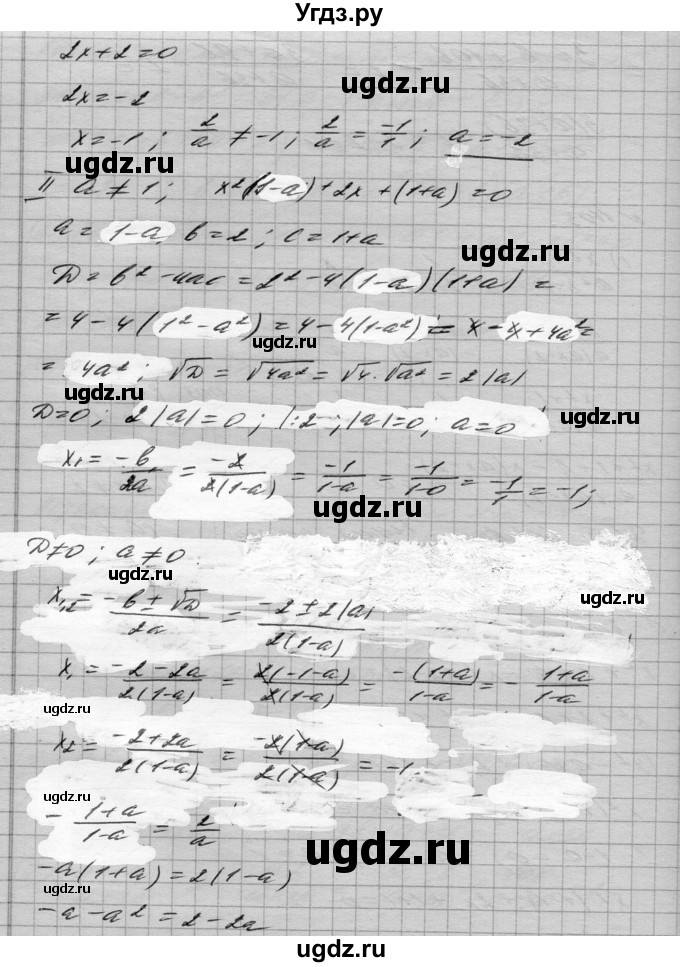 Угдз.ру
2x+2=0
ugdz.ru
2x=-2
x=-1; 2/a ≠ -1; 2/a = -1/1; a=-2
ugdz.ru
II a≠1; x²(1-a)+2x+(1+a)=0
a=1-a, b=2; c=1+a
ugdz.ru
D=b²-4ac=2²-4(1-a)(1+a)=
=4-4(1²-a²)=4-4(1-a²)=4-4+4a²=
ugdz.ru
=4a²; √D=√4a²=√4·√a²=2|a|
ugdz.ru
D=0; 2|a|=0; |:2; |a|=0; a=0
ugdz.ru
x₁=-b/2a=-2/2(1-a)=-1/1-a=-1/1-0=-1/1=-1;
ugdz.ru
D≠0; a≠0
ugdz.ru
x₁,₂=-b±√D/2a=-2±2|a|/2(1-a)
x₁=-2-2a/2(1-a)=2(-1-a)/2(1-a)=-(1+a)/1-a=-1+a/1-a
ugdz.ru
x₂=-2+2a/2(1-a)=-2(1-a)/2(1-a)=-1
ugdz.ru
-1+a/1-a=2/a
ugdz.ru
-a(1+a)=2(1-a)
ugdz.ru
-a-a²=2-2a
ugdz.ru